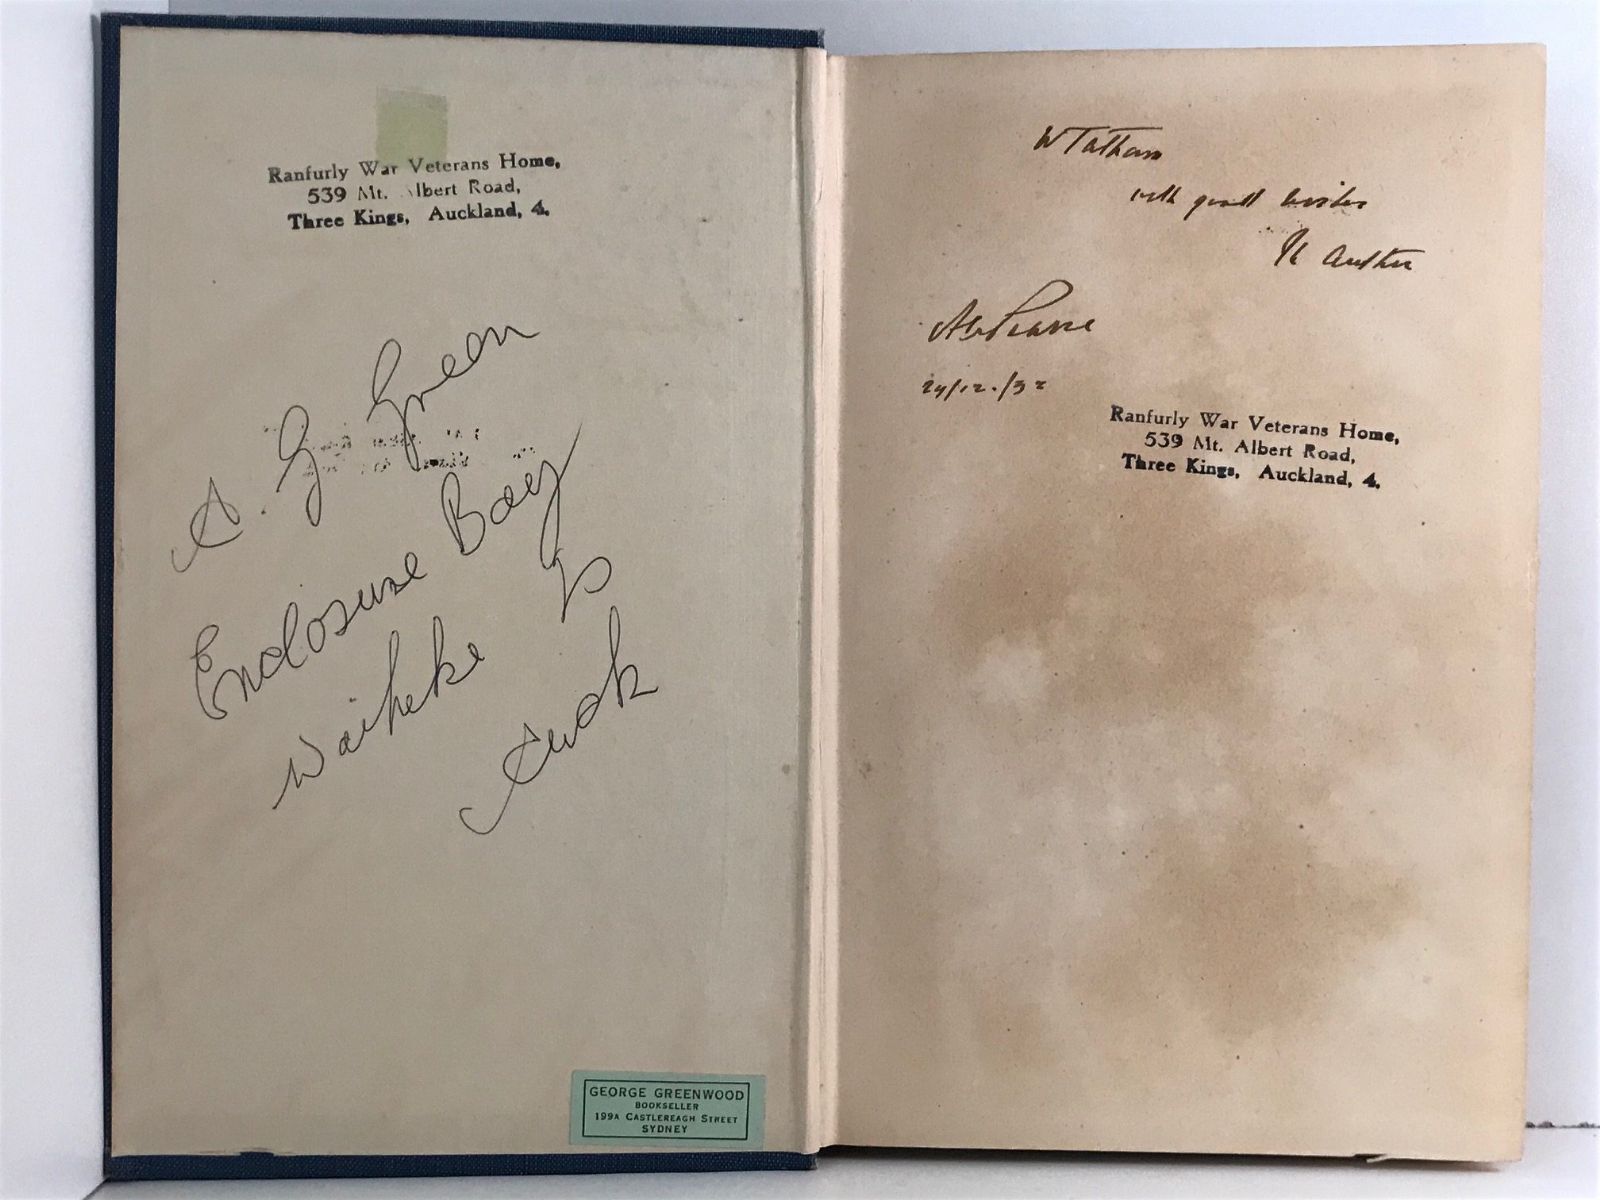 Ranfurly War Veterans Home,
539 Mt. Albert Road,
Three Kings, Auckland, 4.
A. G. Green
Enclosure Bay
Waiheke Is
Auck
GEORGE GREENWOOD
BOOKSELLER
199A CASTLEREAGH STREET
SYDNEY
W Tatham
with good wishes
author
Ranfurly War Veterans Home,
539 Mt. Albert Road,
Three Kings, Auckland, 4.